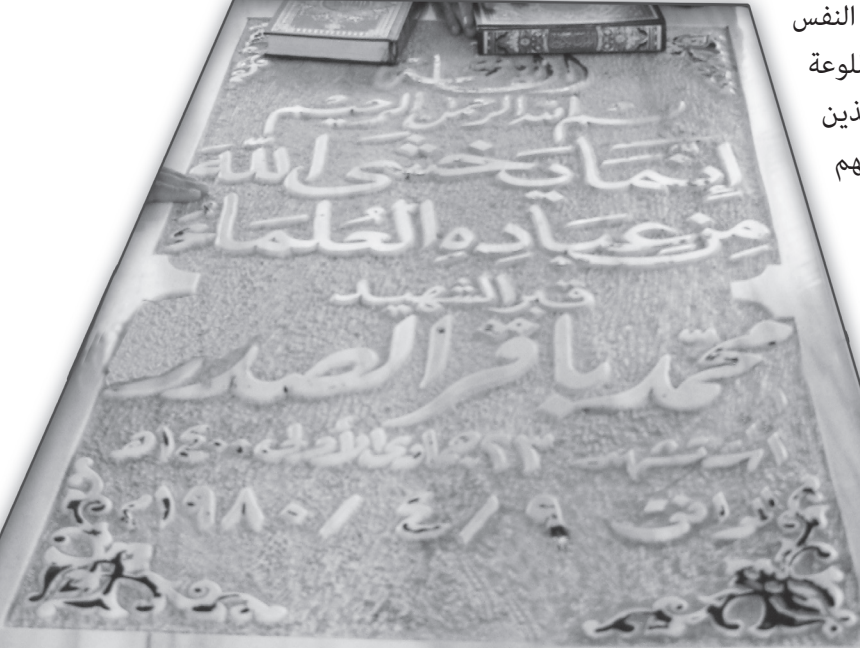 الفاتحة
بسم الله الرحمن الرحيم
إِنَّمَا يَخْشَى اللَّهَ
مِنْ عِبَادِهِ الْعُلَمَاءُ
قبر الشهيد
محمد باقر الصدر
استشهد ٢٣ جمادى الأولى ١٤٠٠هـ
الموافق ٩ / ٤ / ١٩٨٠م
النفس
ذين
هم